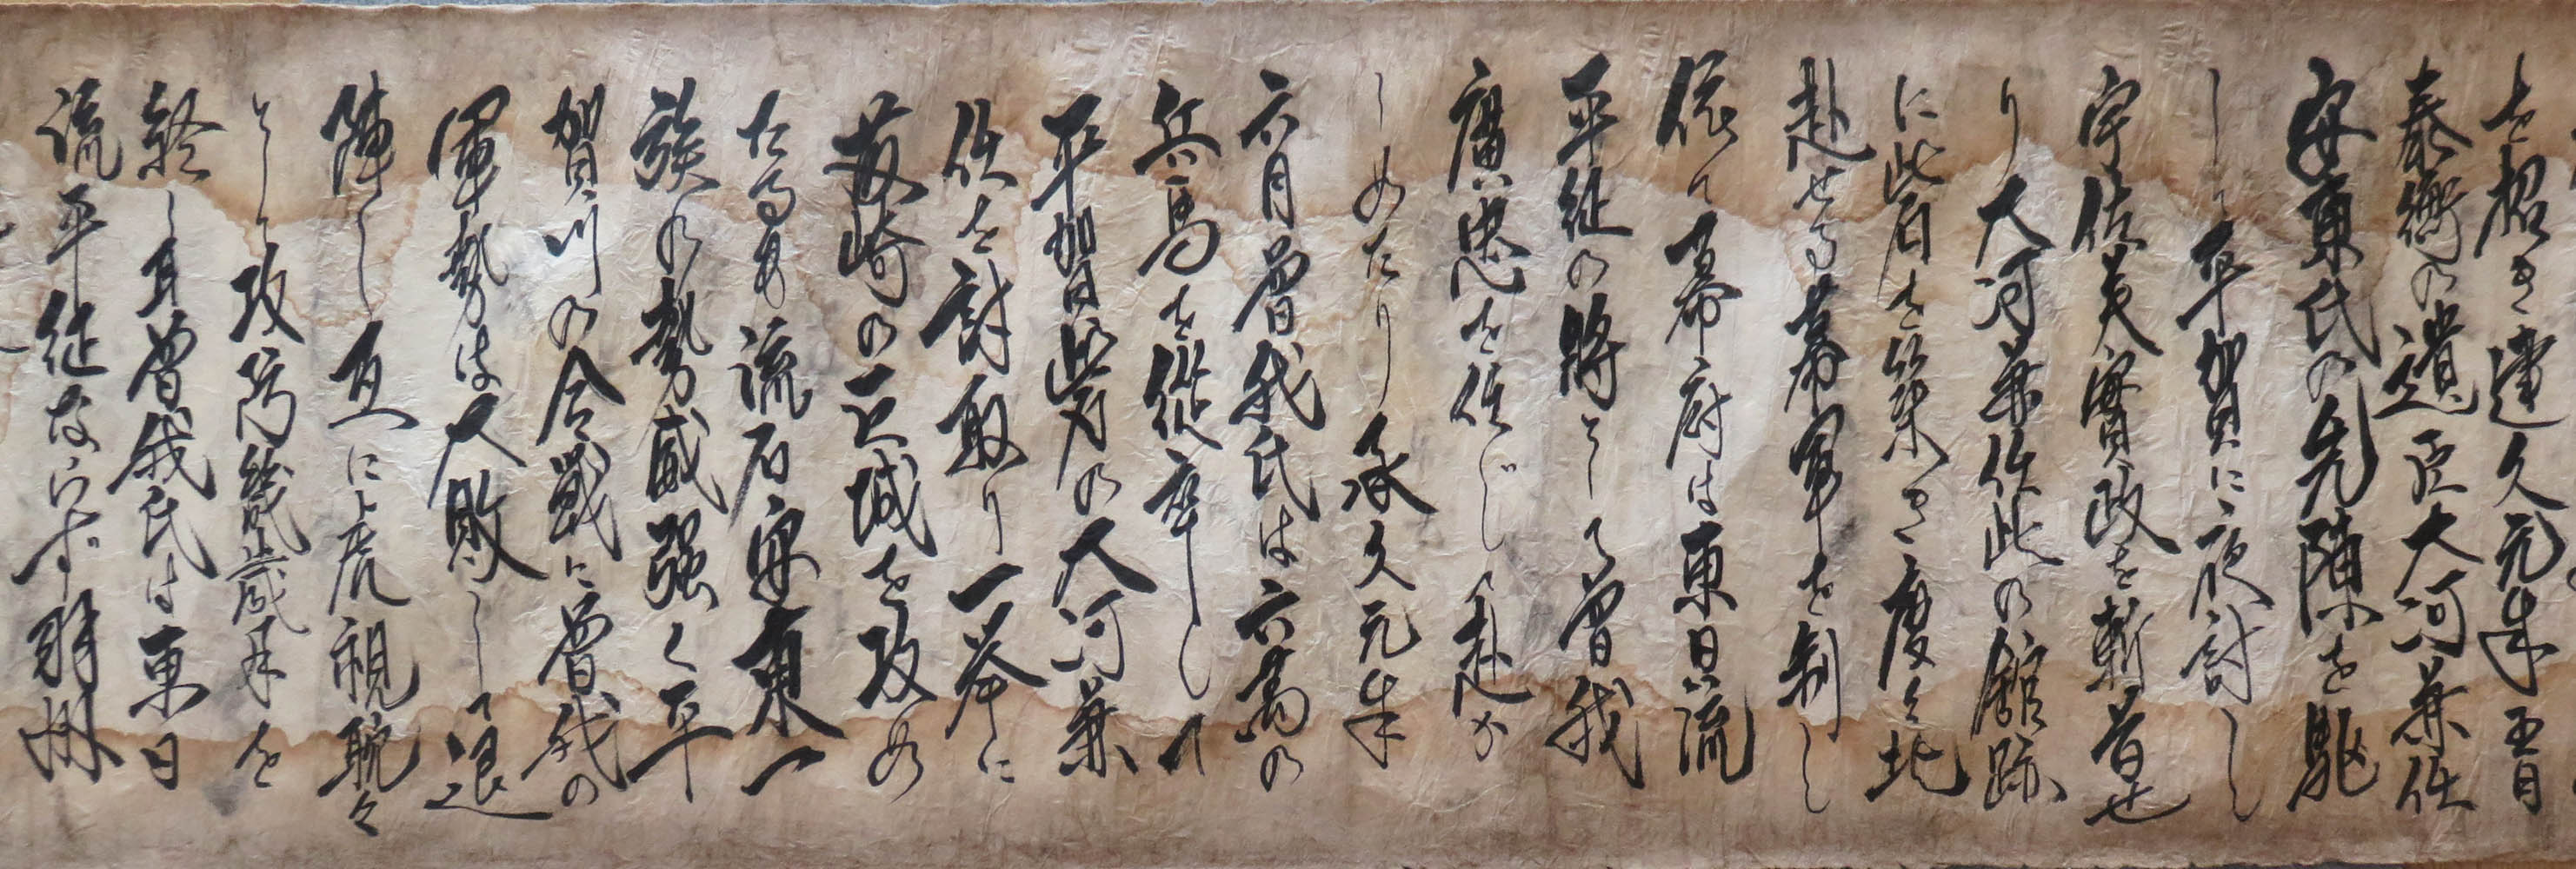 を招き建久元年五月
泰衡の遺臣大河兼任
安東氏の先陣を駆
して平賀に夜討し
宇佐美實政を斬首せ
り大河兼任此の館跡
に此石を築き度々北
赴せる幕軍を制し
依て幕府は東日流
平征の将として曽我
廣忠を任じ赴か
しめたり承久元年
六月曽我氏は六萬の
兵馬を従卒して
平賀此方の大河兼
任を討取り一挙に
藤崎の正城を攻め
たるも流石安東一
族の勢威強く平
賀川の合戦に曽我の
軍勢は大敗して退
陣し互に虎視眈々
として攻防幾歳月を
経し耳曽我氏は東日
流平征ならず